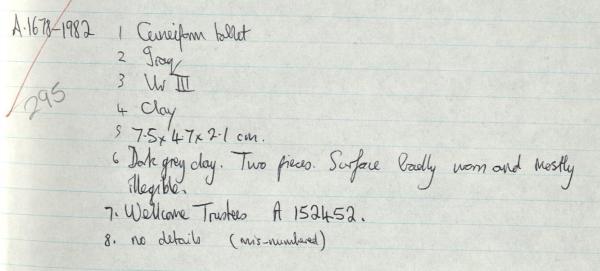 A.1678-1982 1 Cuneiform tablet
2 Iraq
3 Ur III
295
4 Clay
5 7.5 x 4.7 x 2.1 cm.
6 Dark grey clay. Two pieces. Surface badly worn and mostly
illegible.
7. Wellcome Trustees A 152452.
8. no details (mis-numbered)